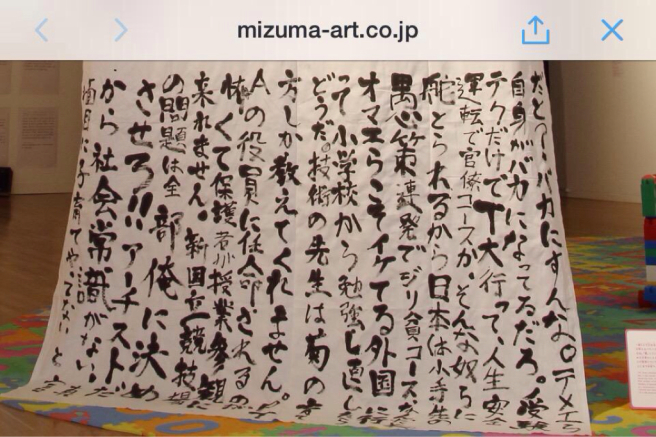 mizuma-art.co.jp
だと？バカにすんな。テメエ
自身がバカになってるだろ。受験
テクだけでT大行って、人生安
運転で官僚コースか。そんな奴らに
舵とられるから日本は小手先の
愚策連発でジリ貧コース
オマエらこそイケてる外国行
って小学校から勉強し直し
どうだ。技術の先生は菊の育
て方しか教えてくれません。
Aの役員に任命されるの
怖くて保護者が授業参観に
来れません。新国立競技場
の問題は全部俺に決め
させろ!!アーチストだ
から社会常識がない
子育てやってない と